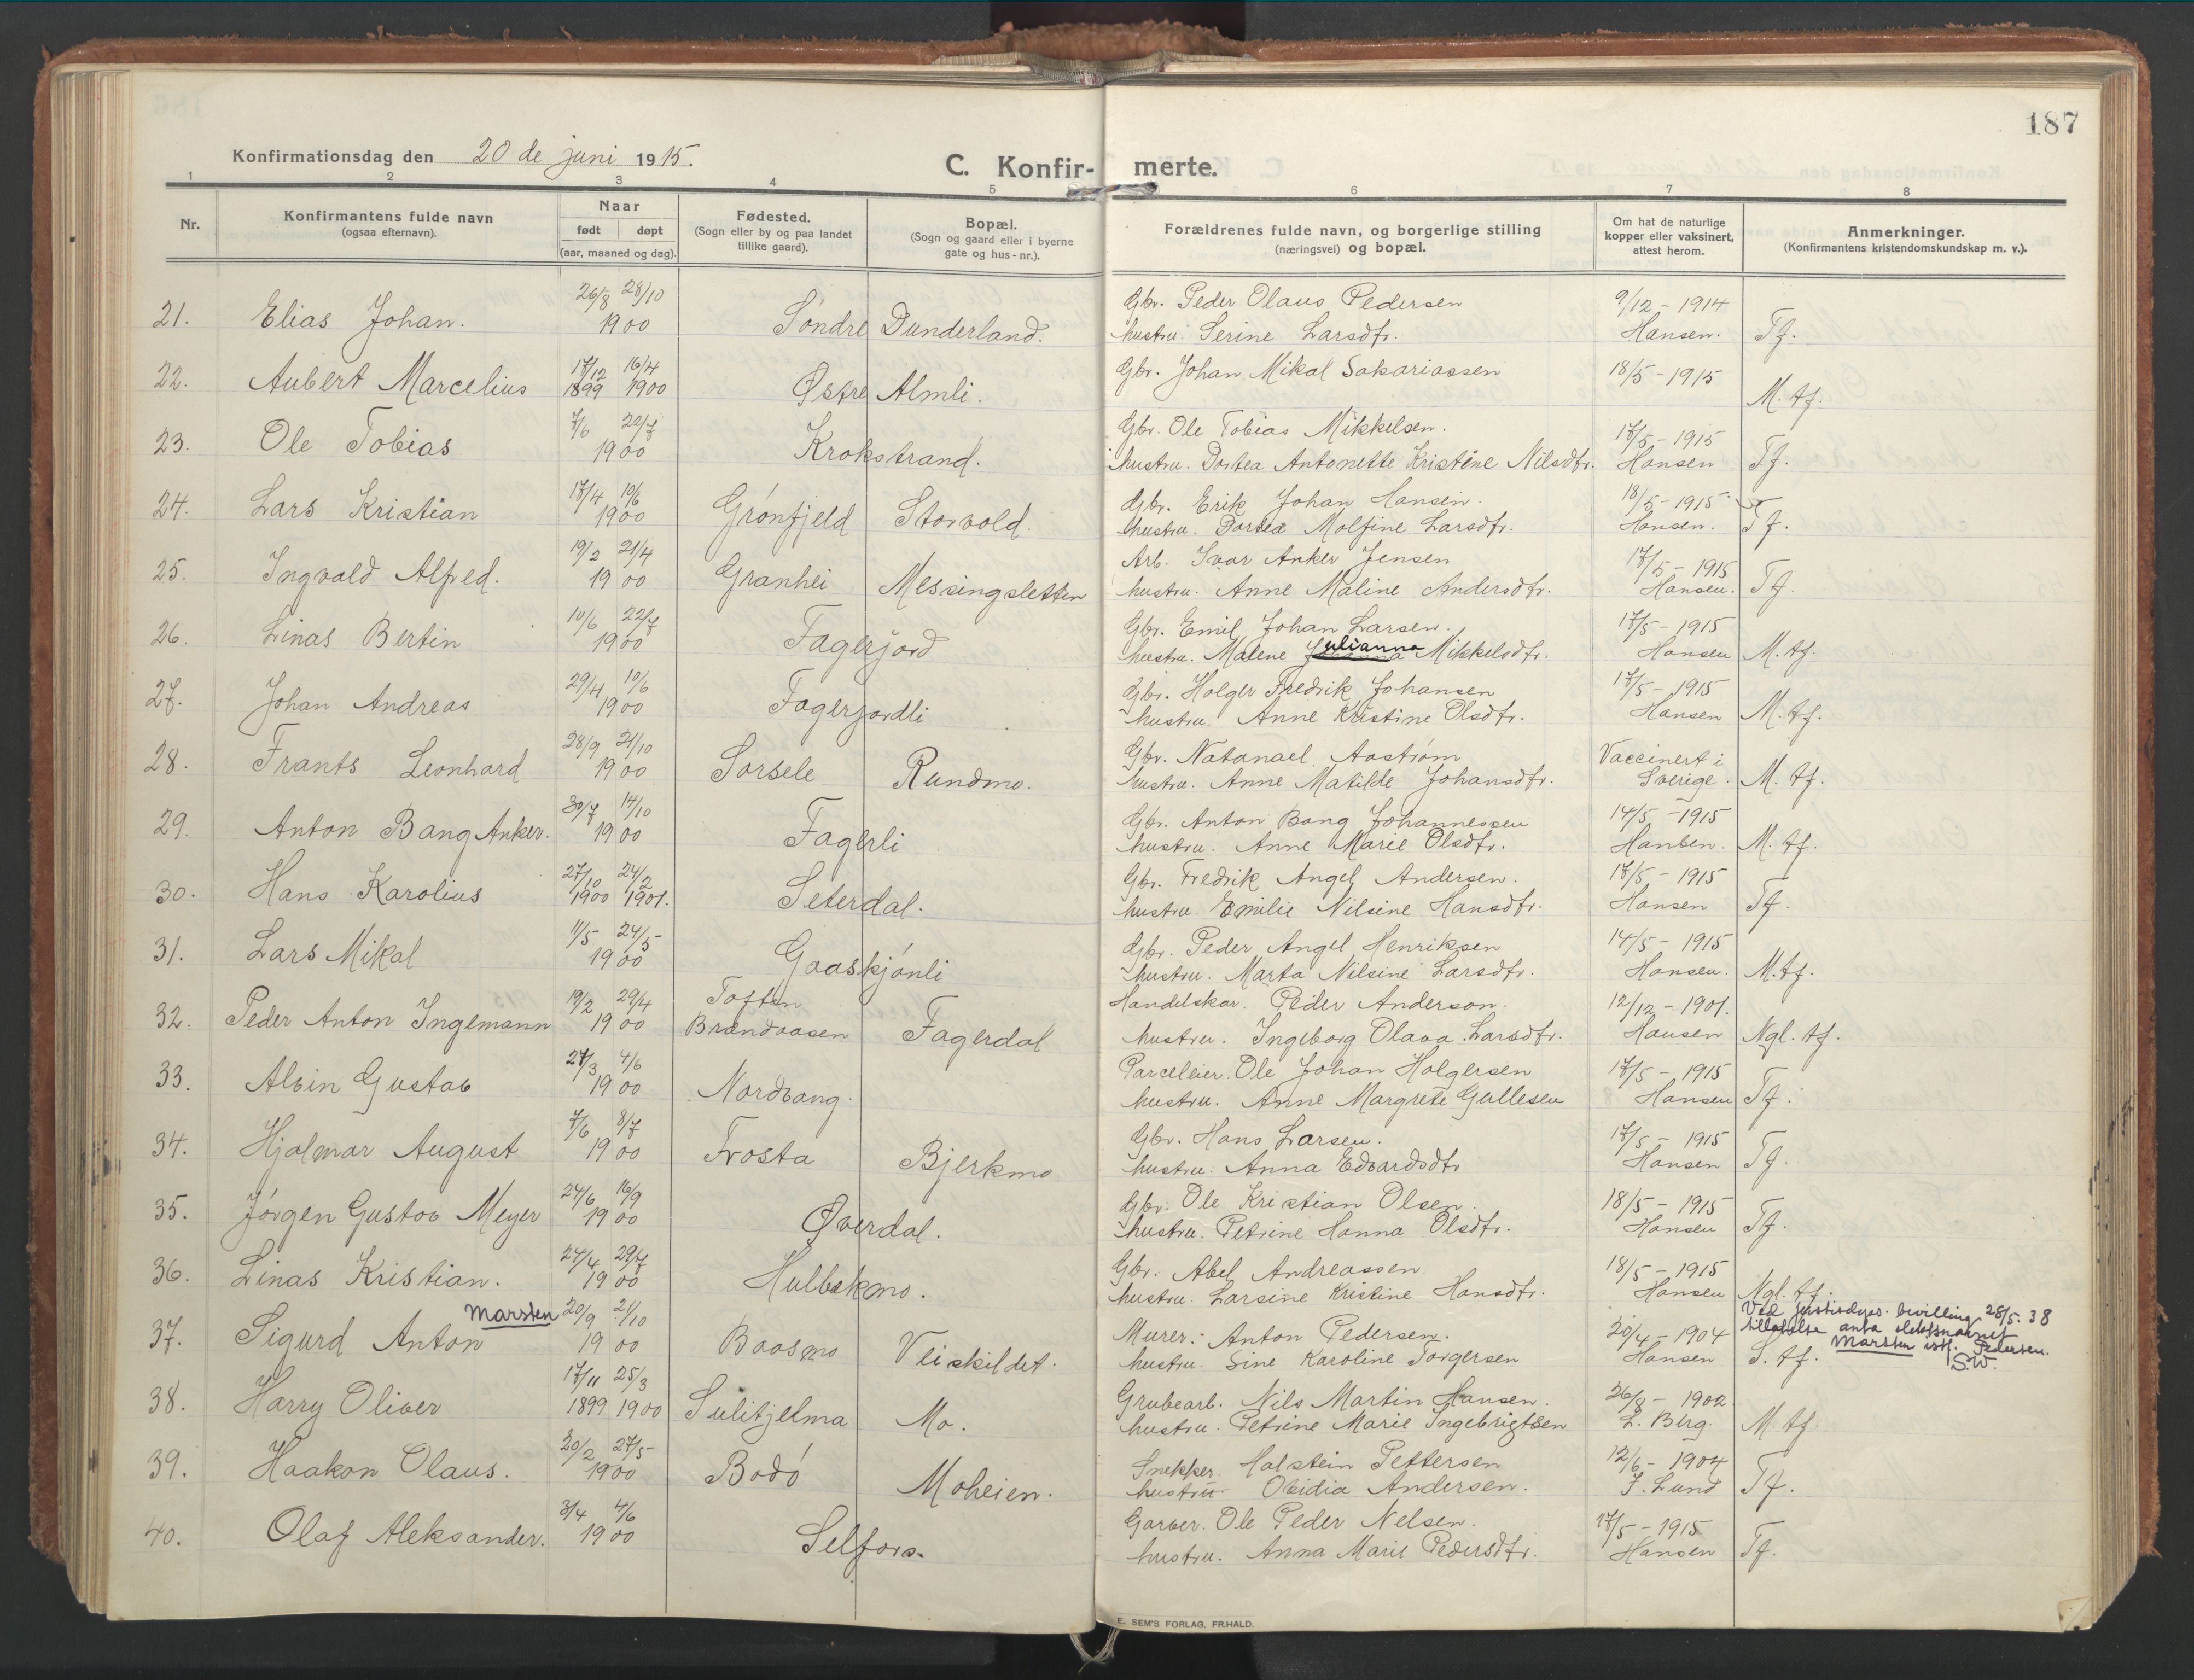 187
Konfirmationsdag den 20 de juni 1915.
C. Konfir- merte.
1 2 3 4 5 6 7 8
Nr. Konfirmantens fulde navn (ogsaa efternavn). Naar født døpt (aar, maaned og dag). Fødested. (Sogn eller by og paa landet tillike gaard). Bopæl. (Sogn og gaard eller i byerne gate og hus-nr.). Forældrenes fulde navn, og borgerlige stilling (næringsvei) og bopæl. Om hat de naturlige kopper eller vaksinert, attest herom. Anmerkninger. (Konfirmantens kristendomskundskap m. v.).
21. Elias Johan. 26/8 28/10 1900 Søndre Dunderland. Gbr. Peder Olaus Pedersen 9/12 - 1914
hustru Serine Larsdtr. Hansen. Tf.
22. Aubert Marcelius 17/12 1899 16/4 1900 Østre Almli. Gbr. Johan Mikal Sakariassen 18/5 - 1915 M. tf.
23. Ole Tobias 7/6 22/7 1900 Krokstrand. Gbr. Ole Tobias Mikkelsen. 17/5 - 1915
hustru. Dortea Antonette Kristine Nilsdtr. Hansen Tf.
24. Lars Kristian 17/4 10/6 1900 Grønfjeld Storvold. Gbr. Erik Johan Hansen. 18/5 - 1915
hustru. Dortea Molfine Larsdtr. Hansen. Tf.
25. Ingvald Alfred. 19/2 21/4 1900 Granhei Messingsletten Arb. Ivar Anker Jensen 17/5 - 1915
hustru. Anne Maline Andersdtr. Hansen. Tf.
26. Linas Bertin 10/6 22/7 1900 Fagerjord Gbr. Emil Johan Larsen. 17/5 - 1915
hustru. Malene Julianna Mikkelsdtr. Hansen M. tf.
27. Johan Andreas 29/4 10/6 1900 Fagerjordli Gbr. Holger Fredrik Johansen 17/5 - 1915
hustru Anne Kristine Olsdtr. Hansen M. tf.
28. Frants Leonhard 28/9 21/10 1900 Sorsele Rundmo. Gbr. Natanael Aastrøm Vaccinert i
hustru. Anne Matilde Johansdtr. Sverige. M. tf.
29. Anton Bang Anker. 30/7 14/10 1900 Fagerli Gbr. Anton Bang Johannessen 14/5 - 1915
hustru. Anne Marie Olsdtr. Hansen. M. tf.
30. Hans Karolius 27/10 1900 24/2 1901. Seterdal. Gbr. Fredrik Angel Andersen. 17/5 - 1915
hustru. Emilie Nilsine Hansdtr. Hansen Tf.
31. Lars Mikal 11/5 24/5 1900 Gaaskjønli Gbr. Peder Angel Henriksen 14/5 - 1915
hustru. Marta Nilsine Larsdtr. Hansen. M. tf.
32. Peder Anton Ingemann 19/2 29/4 1900 Toften Brændaasen Fagerdal Handelskar. Peder Anderson. 12/12 - 1901.
hustru. Ingeborg Olava Larsdtr. Hansen Ngl. tf.
33. Alvin Gustav 27/3 4/6 1900 Nordvang. Parceleier. Ole Johan Holgersen 17/5 - 1915
hustru. Anne Margrete Gullesen Hansen Tf.
34. Hjalmar August 7/6 8/7 1900 Frosta Bjerkmo Gbr. Hans Larsen. 17/5 - 1915
hustru. Anna Edvardsdtr Hansen Tf.
35. Jørgen Gustav Meyer 24/6 16/9 1900 Øverdal. Gbr. Ole Kristian Olsen. 18/5 - 1915
hustru. Petrine Hanna Olsdtr. Hansen Tf.
36. Linas Kristian. 24/4 29/7 1900 Hulbekmo. Gbr. Abel Andreassen 18/5 - 1915
hustru. Larsine Kristine Hansdtr. Hansen Ngl. tf.
37. Sigurd Anton Marsten 20/9 21/10 1900 Baasmo Veiskildet. Murer: Anton Pedersen. 20/4 - 1904
hustru. Sine Karoline Torgersen Hansen S. tf.
Ved justisdeps. bevilling 28/5. 38
tillatelse anta slektsnavnet
Marsten istf. Pedersen.
S.W.
38. Harry Oliver 17/11 1899 25/3 1900 Sulitjelma Mo. Grubearb. Nils Martin Hansen. 26/8 - 1902
hustru. Petrine Marie Ingebrigtsen L. Berg. M. tf.
39. Haakon Olaus. 20/2 27/5 1900 Bodø Moheien. Snekker. Halstein Pettersen 12/6 - 1904
hustru. Ovidia Andersen. J. Lund Tf.
40. Olaf Aleksander. 3/4 4/6 1900 Selfors. Garver. Ole Peder Nelsen. 17/5 - 1915
hustru. Anna Marie Pedersdtr. Hansen Tf.
E. SEM'S FORLAG, FR.HALD.